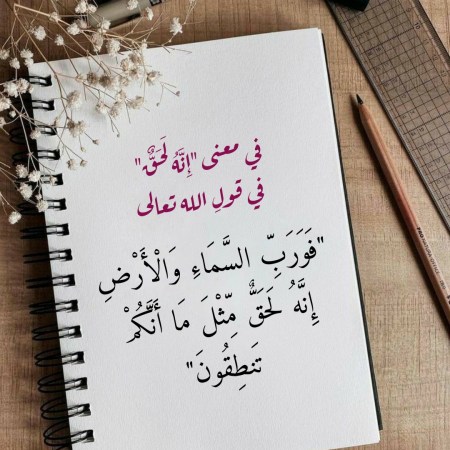 في معنى "إِنَّهُ لَحَقٌّ"
في قولِ الله تعالى
"فَوَرَبِّ السَّمَاءِ وَالْأَرْضِ
إِنَّهُ لَحَقٌّ مِّثْلَ مَا أَنَّكُمْ
تَنطِقُونَ"